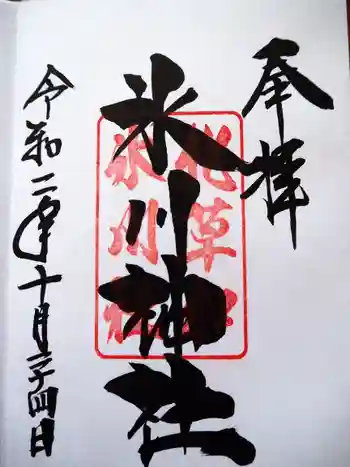 奉拝
氷川神社
北草
氷川
令和二年十月二十四日